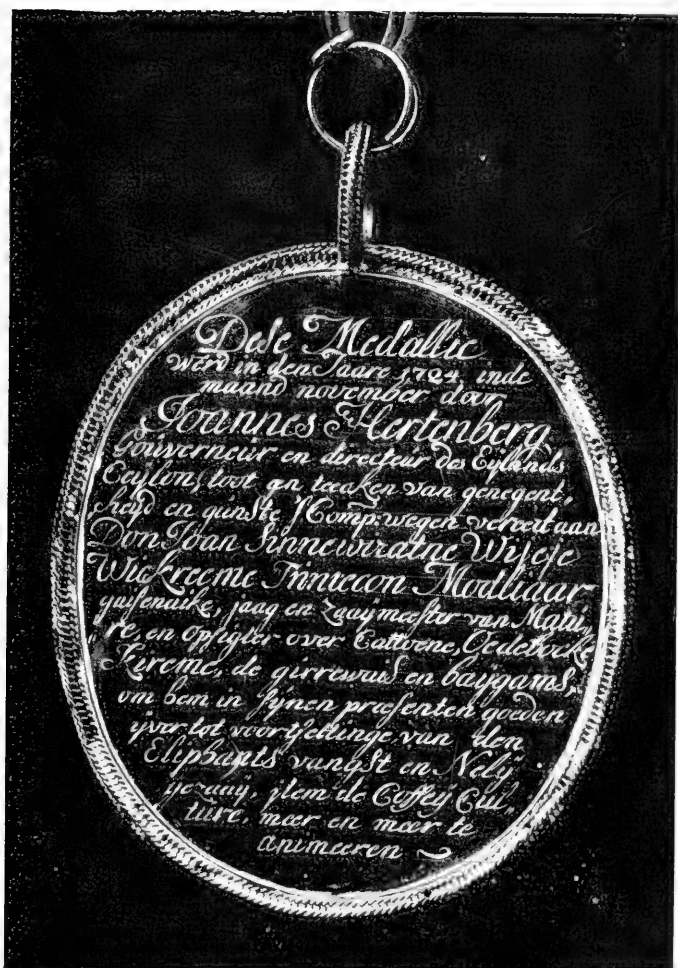 Dese Medallie
werd in den Jaare 1724 inde
maand november door
Joannes Hertenberg
Gouverneur en directeur des Eylands
Ceylon, toot en teeken van genegent,
heyd en gunste s'Comp: wegen vereert aan
Don Joan Sinnewiratne Wijese
Wickreeme Modliaar
guisenaike, jaag en Zaaymeester van Matu,
re, en Opsigter over Cattoene, Oedebocke
Kireme, de girrewais en baygams,
om hem in synen presenten goeden
yver tot voortsettinge van den
Eliphants vangst en Nely
gezaay, item de Coffey Cul,
ture, meer en meer te
animeeren